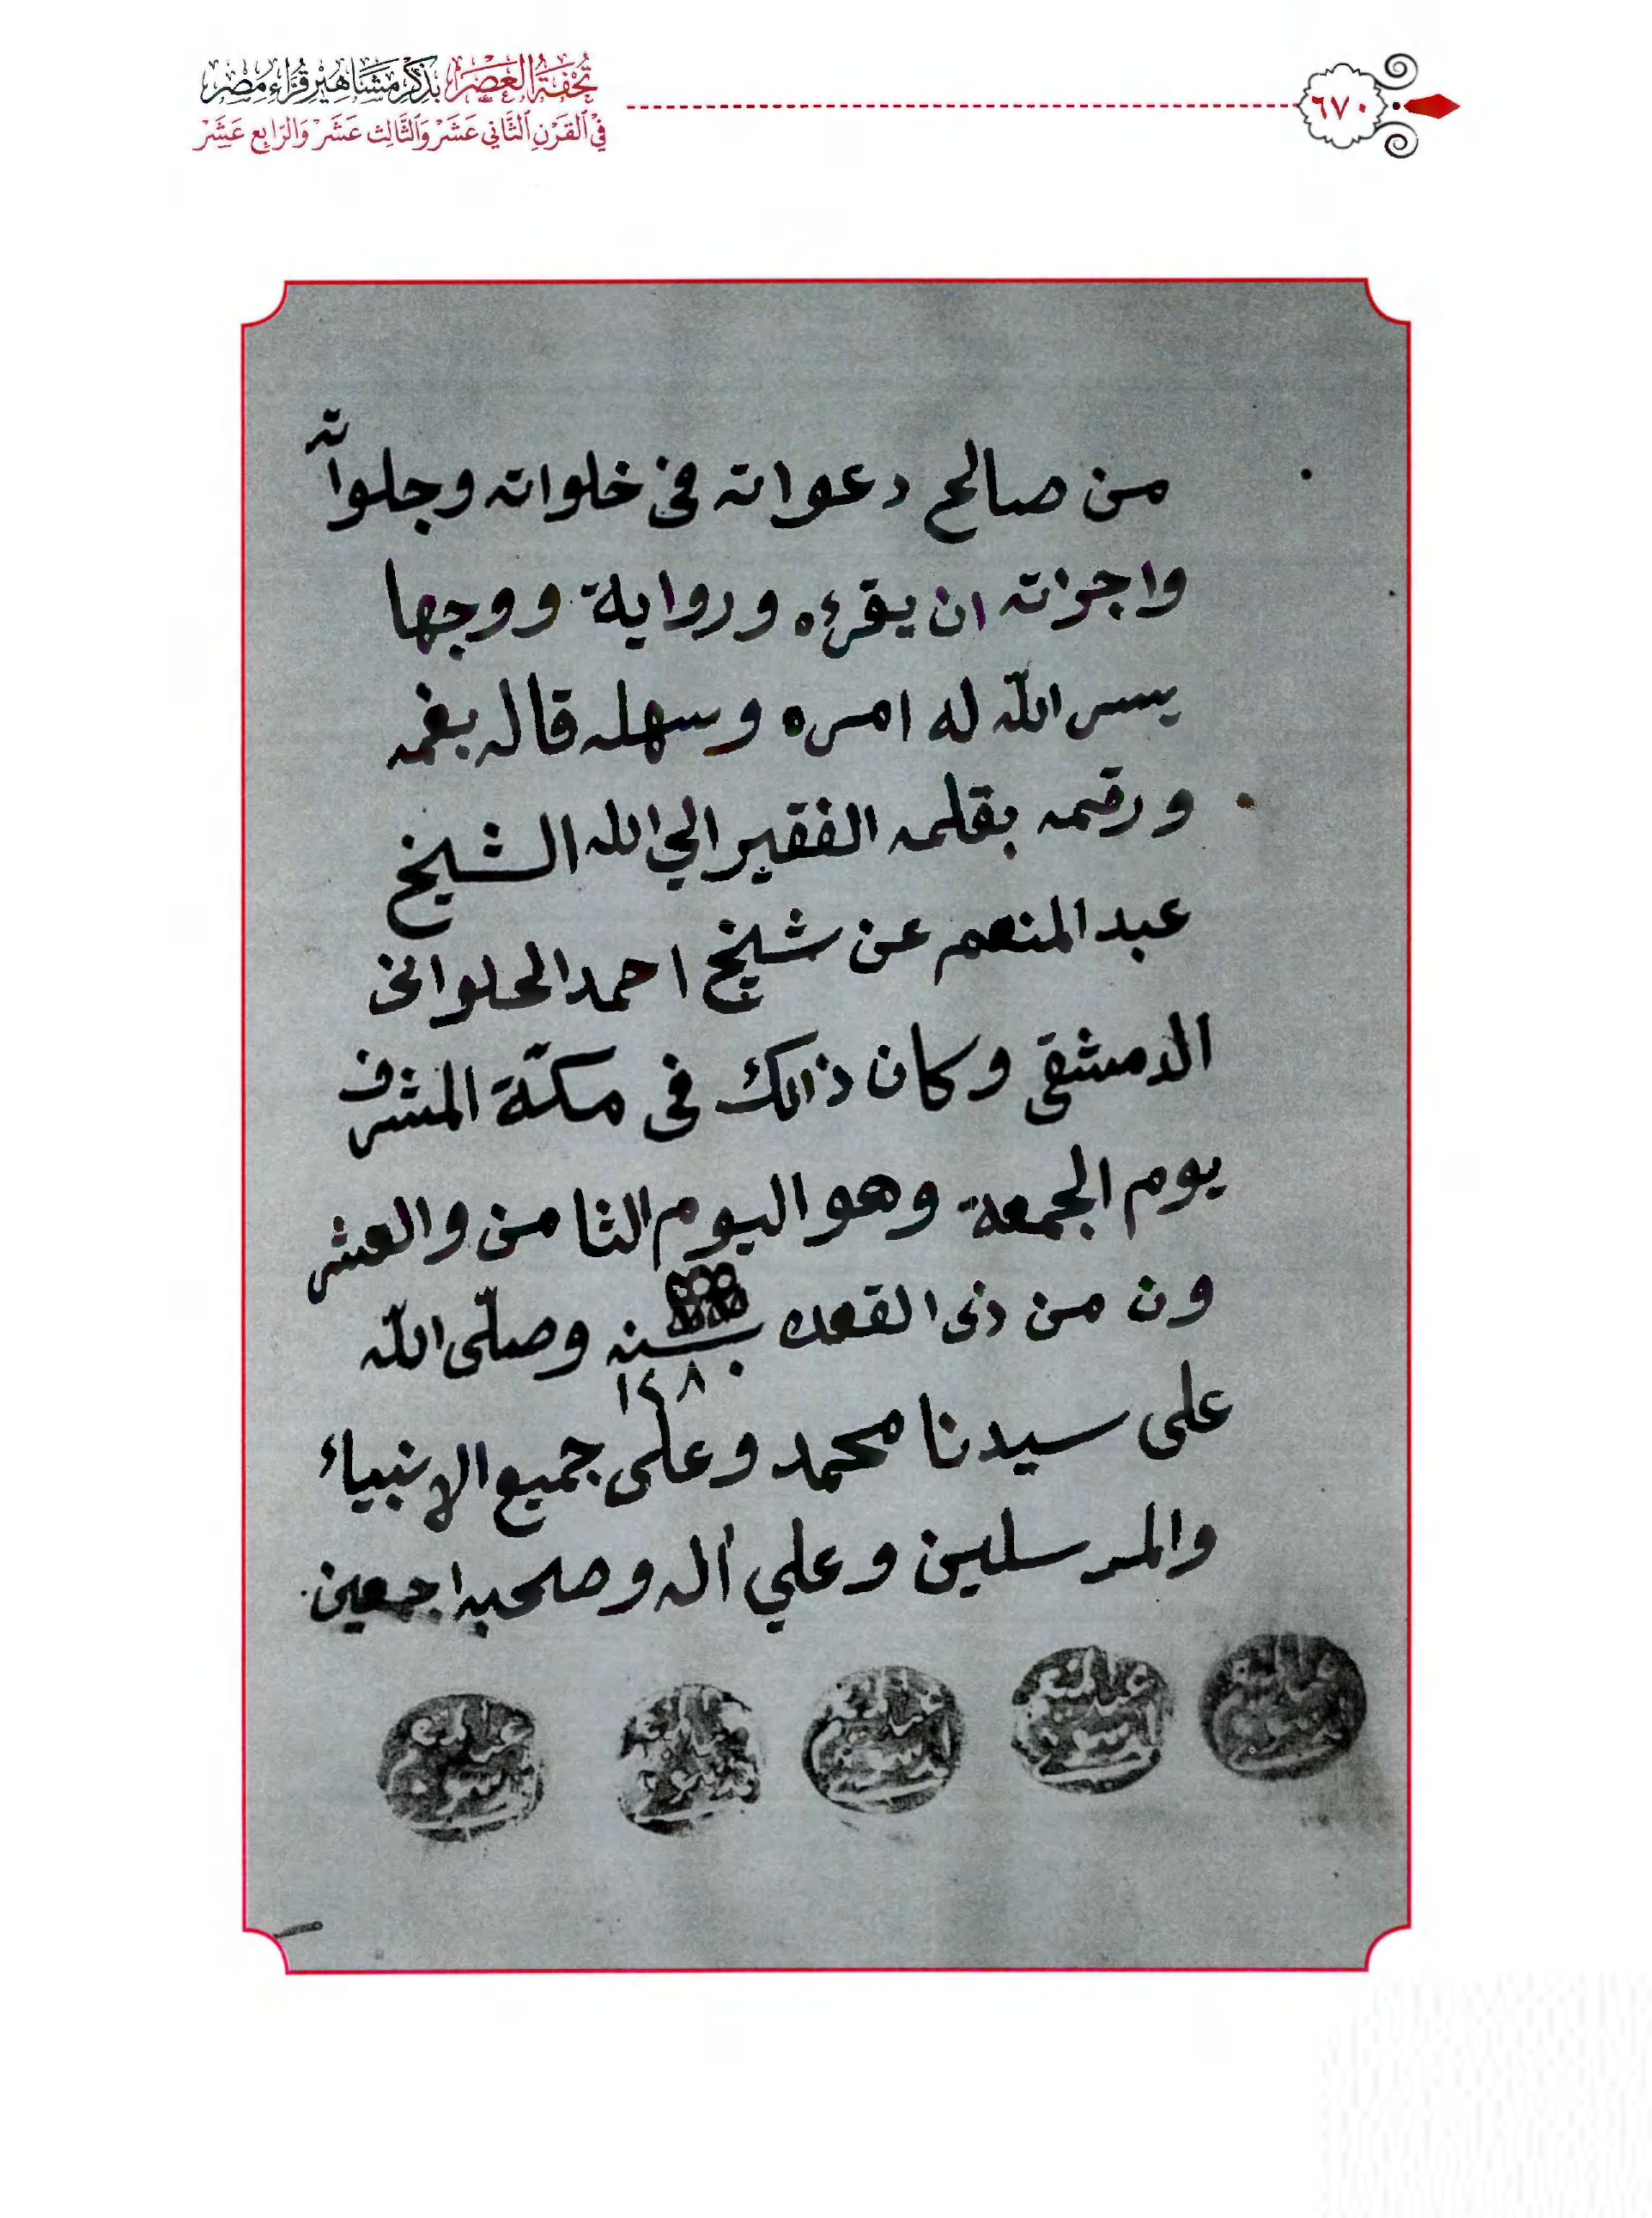 تُحْفَةُ الْعَصْرِ بِذِكْرِ مَشَاهِيرِ قُرَّاءِ مِصْرَ
فِي الْقَرْنِ الثَّانِي عَشَرَ وَالثَّالِث عَشَرَ وَالرَّابِع عَشَرَ
٦٧٠
من صالح دعواته فى خلواته وجلواته
واجزته ان يقرءه ورواية ووجها
يسر اللّه له امره وسهله قاله بفمه
ورقمه بقلمه الفقير الي الله الشيخ
عبد المنعم عن شيخ احمد الحلوانى
الدمشقى وكان ذالك فى مكّة المشرف
يوم الجمعة وهو اليوم الثامن والعشر
ون من ذى القعده سنه ١٢٨٠ وصلّى اللّه
على سيدنا محمد وعلى جميع الانبياء
والمرسلين وعلي آله وصحبه اجمعين
عبد المنعم
عبد المنعم
عبد المنعم
عبد المنعم